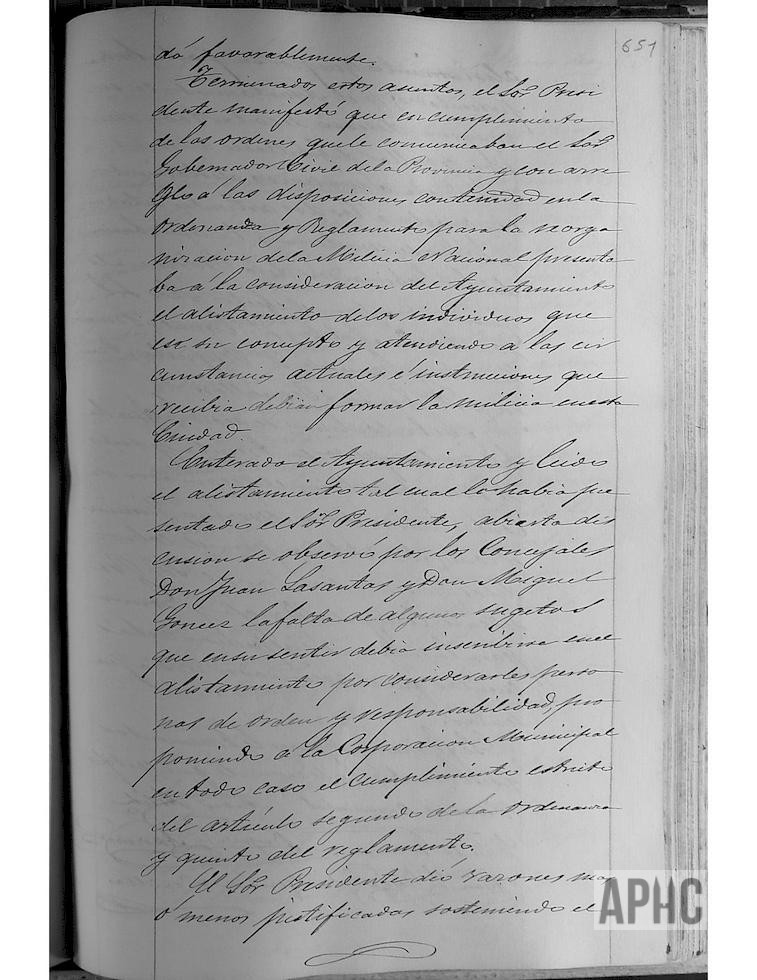 651
dó favorablemente.
Terminados estos asuntos, el Sor Presi
dente manifestó que en cumplimiento
de las ordenes que le comunicaban el Sor
Gobernador Civil de la Provincia y con arre
glo á las disposiciones contenidas en la
Ordenanza y Reglamento para la reorga
nizacion de la Milicia Nacional presenta
ba á la consideracion del Ayuntamiento
el alistamiento de los individuos que
en su concepto y atendiendo á las cir
cunstancias actuales é instrucciones que
recibia debian formar la milicia en esta
Ciudad.
Enterado el Ayuntamiento y leido
el alistamiento tal cual lo habia pre
sentado el Sor Presidente, abierta dis
cusion se observó por los Concejales
Don Juan Lasantas y Don Miguel
Goncer la falta de algunos sugetos
que en su sentir debia inscribirse en el
alistamiento por considerarles perso
nas de orden y responsabilidad, pro
poniendo á la Corporacion Municipal
en todo caso el cumplimiento estricto
del artículo segundo de la Ordenanza
y quinto del reglamento.
El Sor Presidente dió razones mas
ó menos justificadas sosteniendo el
APHC